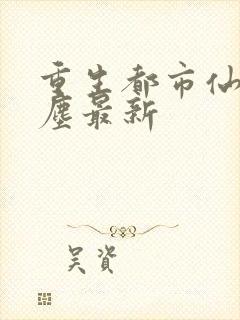 重生都市仙
尘最新
吴资